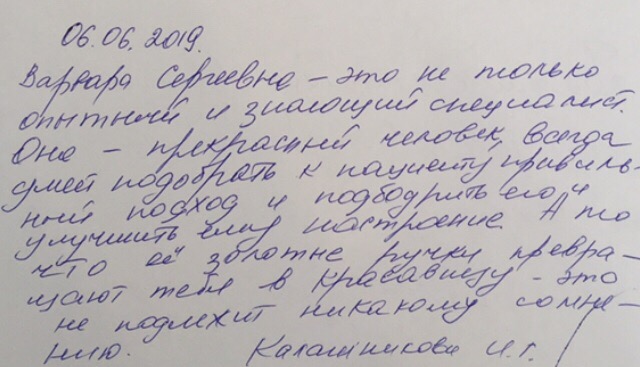 06.06.2019.
Варвара Сергеевна – это не только
опытный и знающий специалист.
Она – прекрасный человек, всегда
умей подобрать к пациенту правиль-
ный подход и подбодрить его и
улучшить ему настроение. А то
что её золотые ручки превра-
щают тебя в красавицу – это
не подлежит никакому сомне-
нию. Калашникова И.Г.